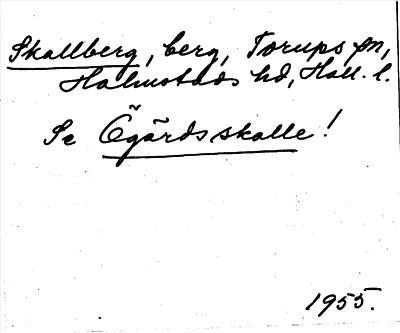 Skallberg, berg, Torups sn,
Halmstads hd, Hall. l.
Se Ögårdsskalle!
1955.